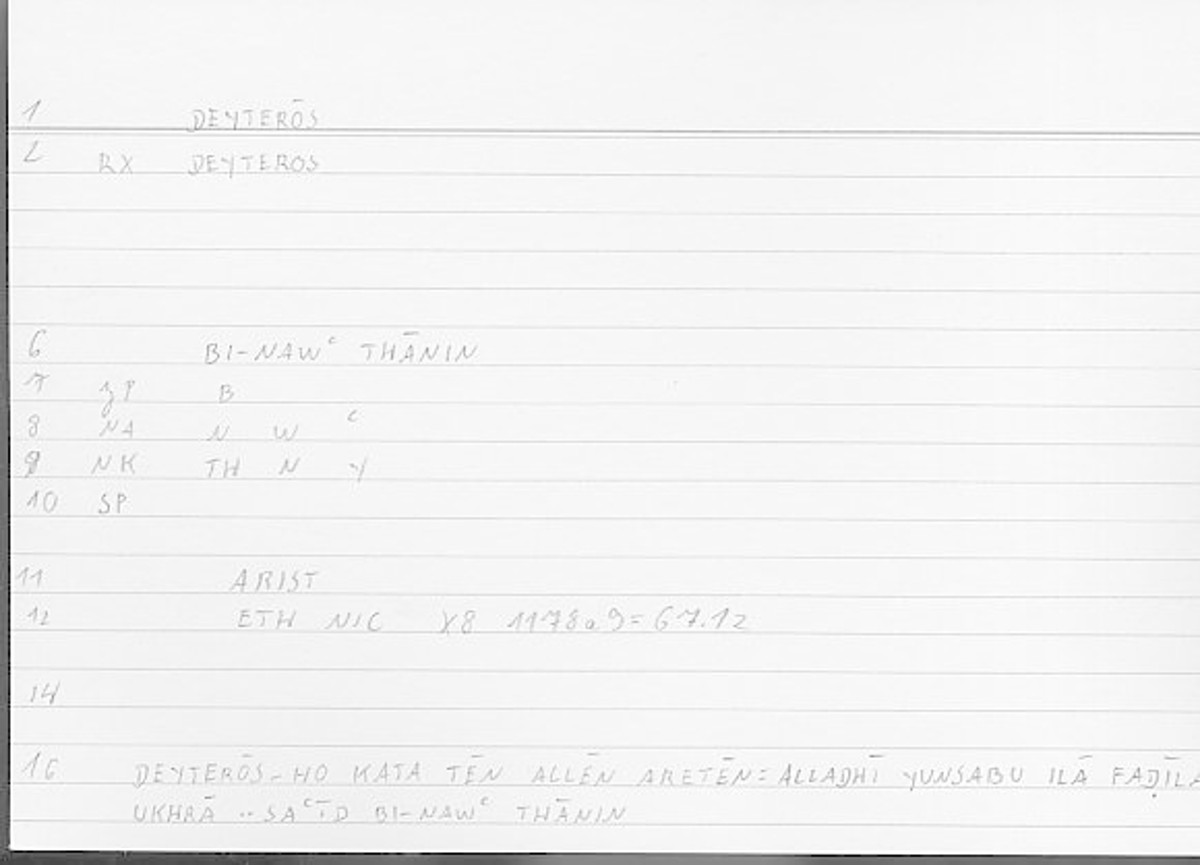 1 DEYTERŌS
2 RX DEYTEROS
6 BI-NAWᶜ THĀNIN
7 3P B
8 NA N W ᶜ
9 NK TH N Y
10 SP
11 ARIST
12 ETH NIC X8 1178a9=67.12
14
16 DEYTERŌS-HO KATA TĒN ALLĒN ARETĒN=ALLADHĪ YUNSABU ILĀ FAḌĪLA
UKHRĀ ..SAᶜĪD BI-NAWᶜ THĀNIN